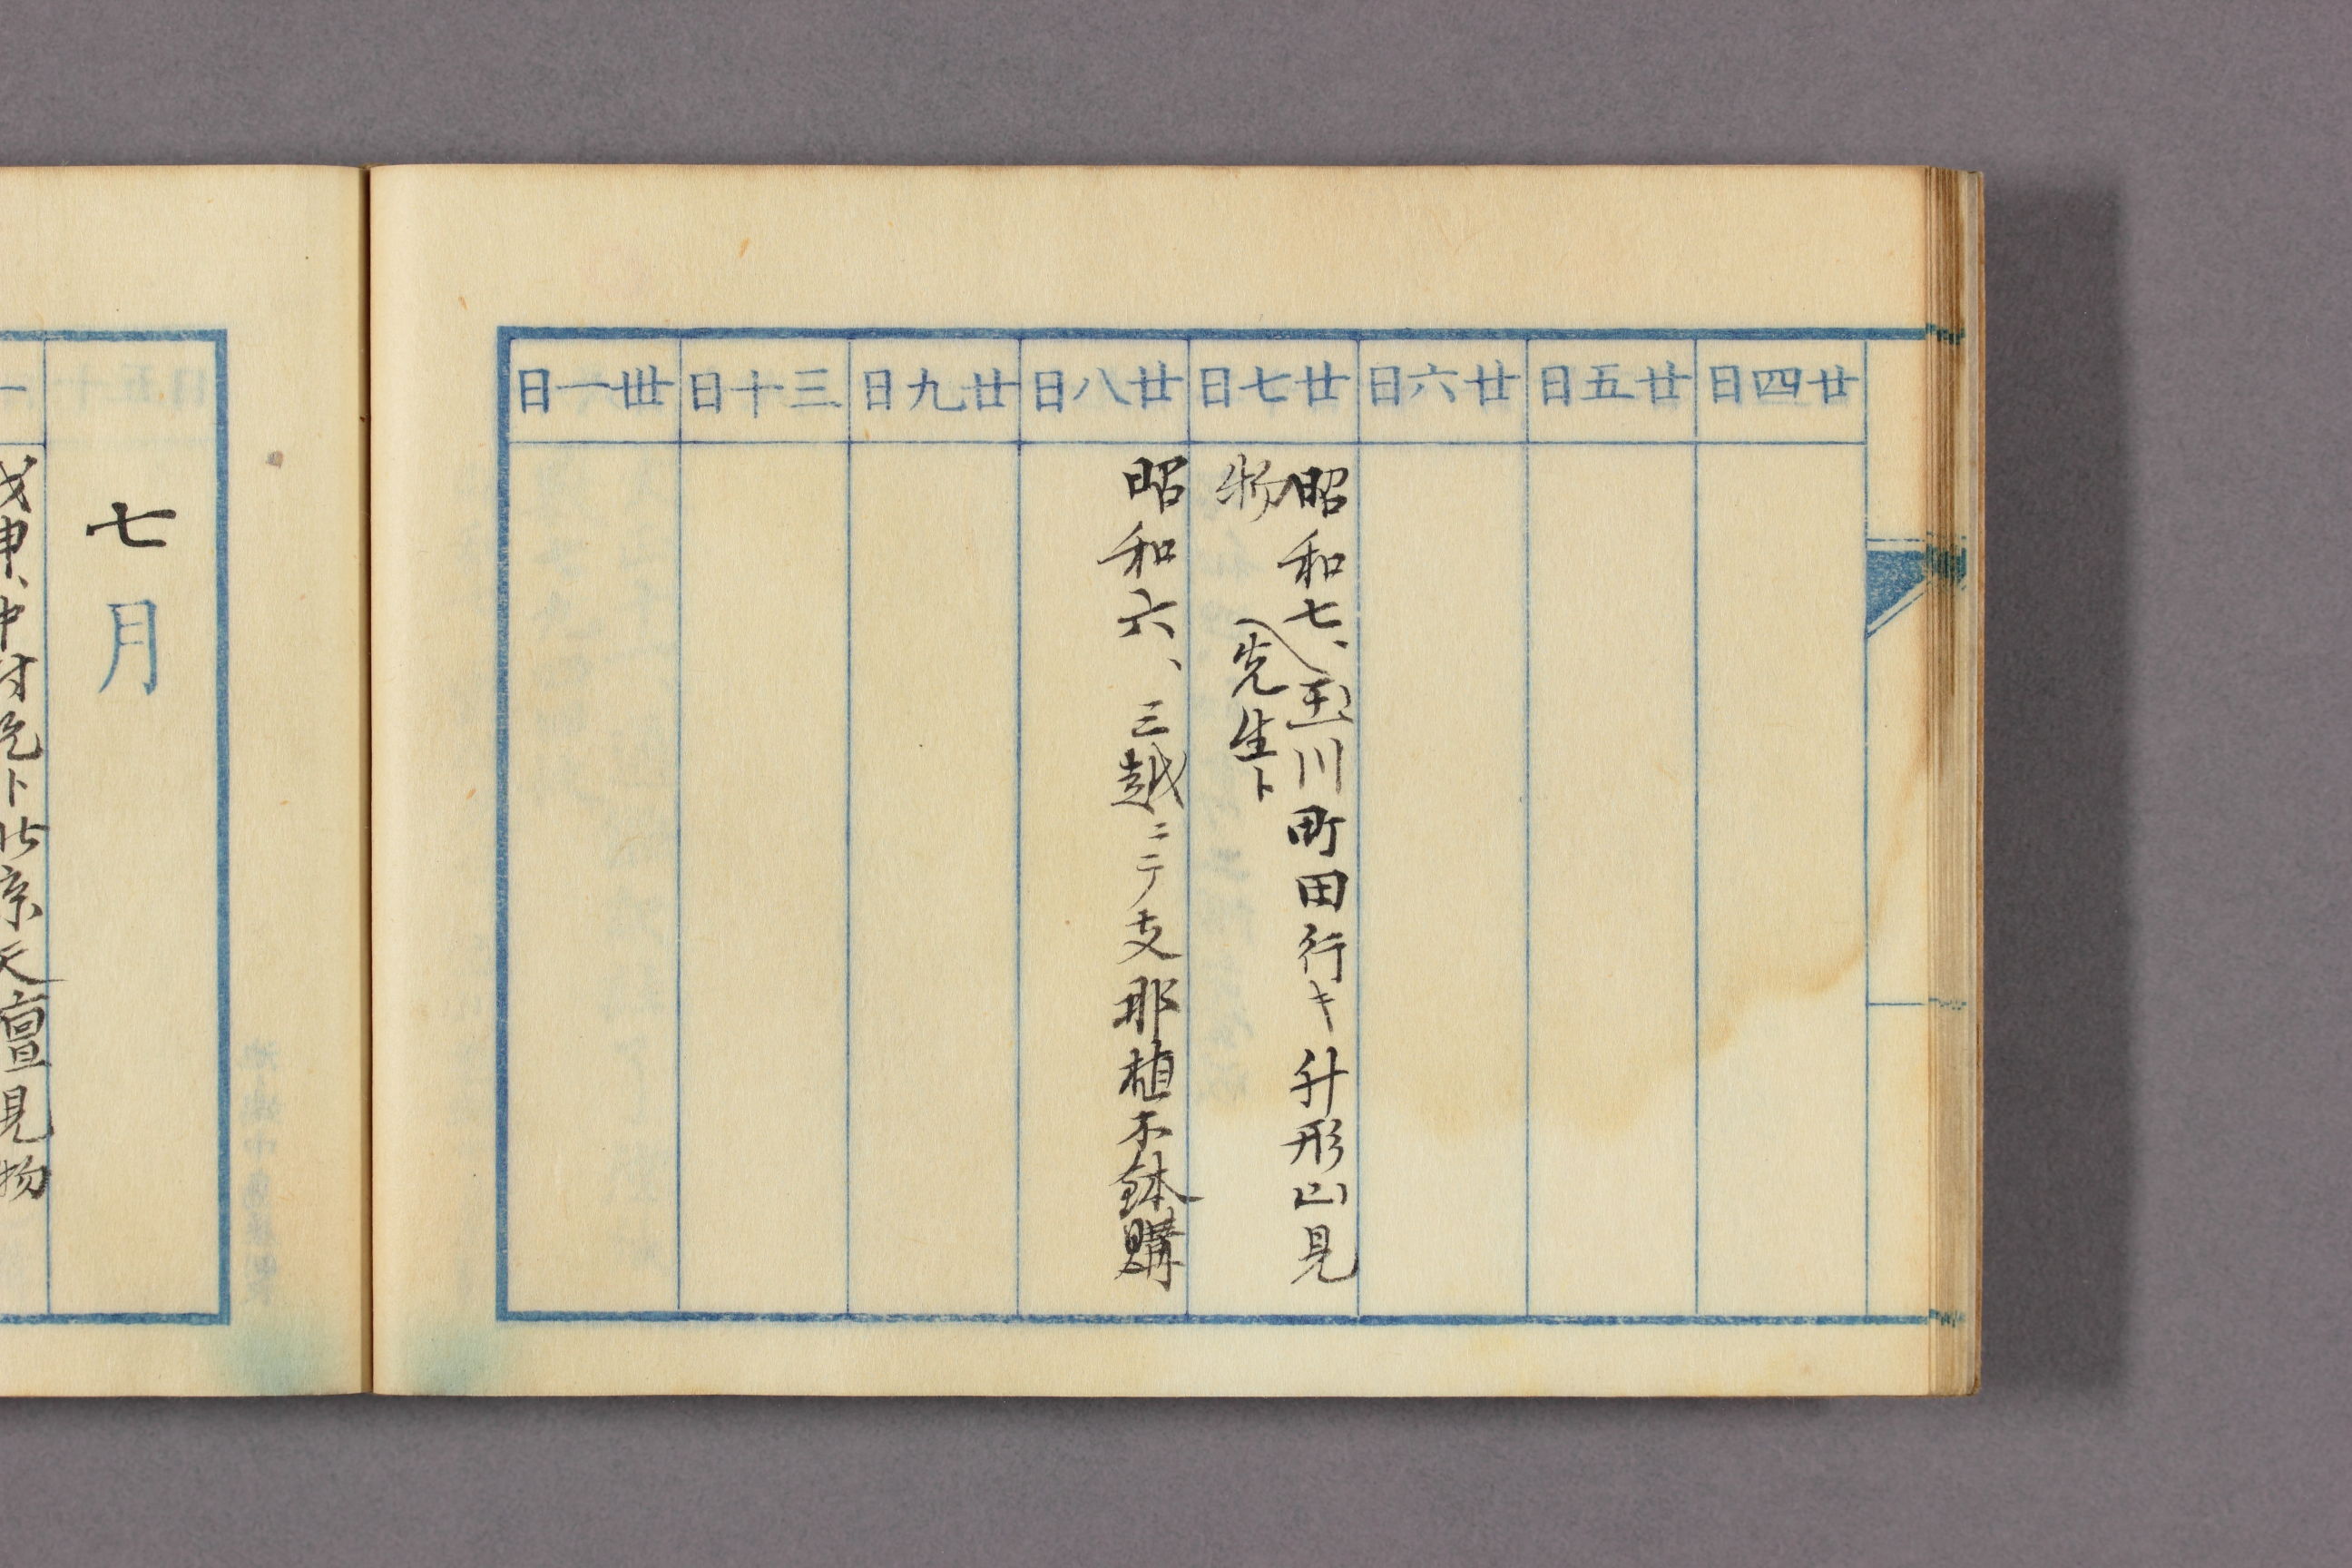 廿四日
廿五日
廿六日
廿七日
昭和七、玉川町田行キ升形山見
物
先生ト
廿八日
昭和六、三越ニテ支那植木鉢購
廿九日
三十日
卅一日
七月
一
戊申、中村兄ト北京天壇見物